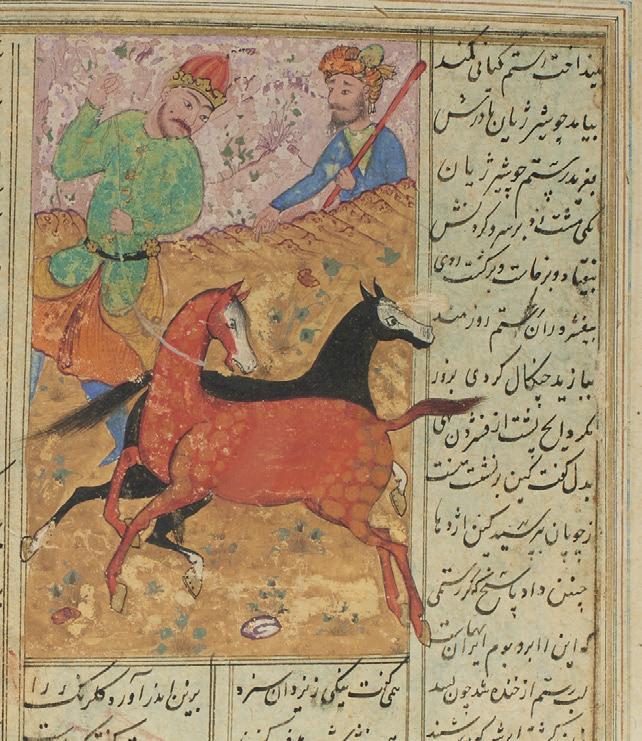 بینداخت رستم کیانی کمند
بیامد چو شیر ژیان مادرش
بغرید رستم چو شیر ژیان
یکی مشت زد بر سر و گردنش
بیفتاد و برخاست و برگشت ازوی
بیفشرد ران رستم زورمند
بیازید چنگال کردی بزور
نکرد ایچ پشت از فشردن تهی
بدل گفت کین برنشست منست
ز چوپان بپرسید کین اژدها
چنین داد پاسخ که گر رستمی
که این را بر و بوم ایران بهاست
لب رستم از خنده شد چون بسد
همی گفت نیکی ز یزدان سزد
بزین اندر آورد گلرنگ را